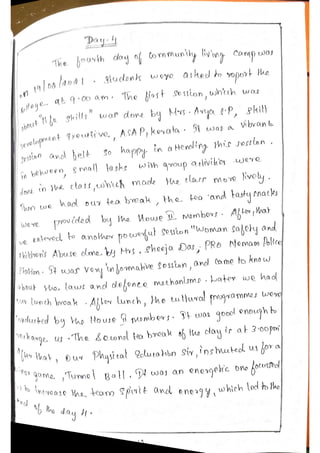 Day-4
The fourth day of community living camp was
on 19/08/2021. Students were asked to report the
college at 9.00 am. The first session, which was
about "life skills" was done by Mrs. Arya S.P, skill
Development Executive, ASAP, kerala. It was a vibrant
session and felt so happy in attending this session.
in between, small tasks with group activities were
done in the class, which made the class more lively.
Then we had our tea break, the tea and tasty snacks
were provided by the House B members. After, that
we entered to another powerful session "Woman safety and
children's Abuse done by Mrs. Sheeja Das, PRO Woman Police
Station. It was very informative session, and came to know
about the laws and defence mechanisms. Later we had
our lunch break. After lunch, the cultural programmes were
conducted by the House B members. It was good enough to
recharge us. The second tea break of the day is at 3:00pm
After that, our Physical Education Sir, instructed us for a
game, Tunnel Ball. It was an energetic one focused
to increase the team spirit and energy, which led to the
end of the day 4.